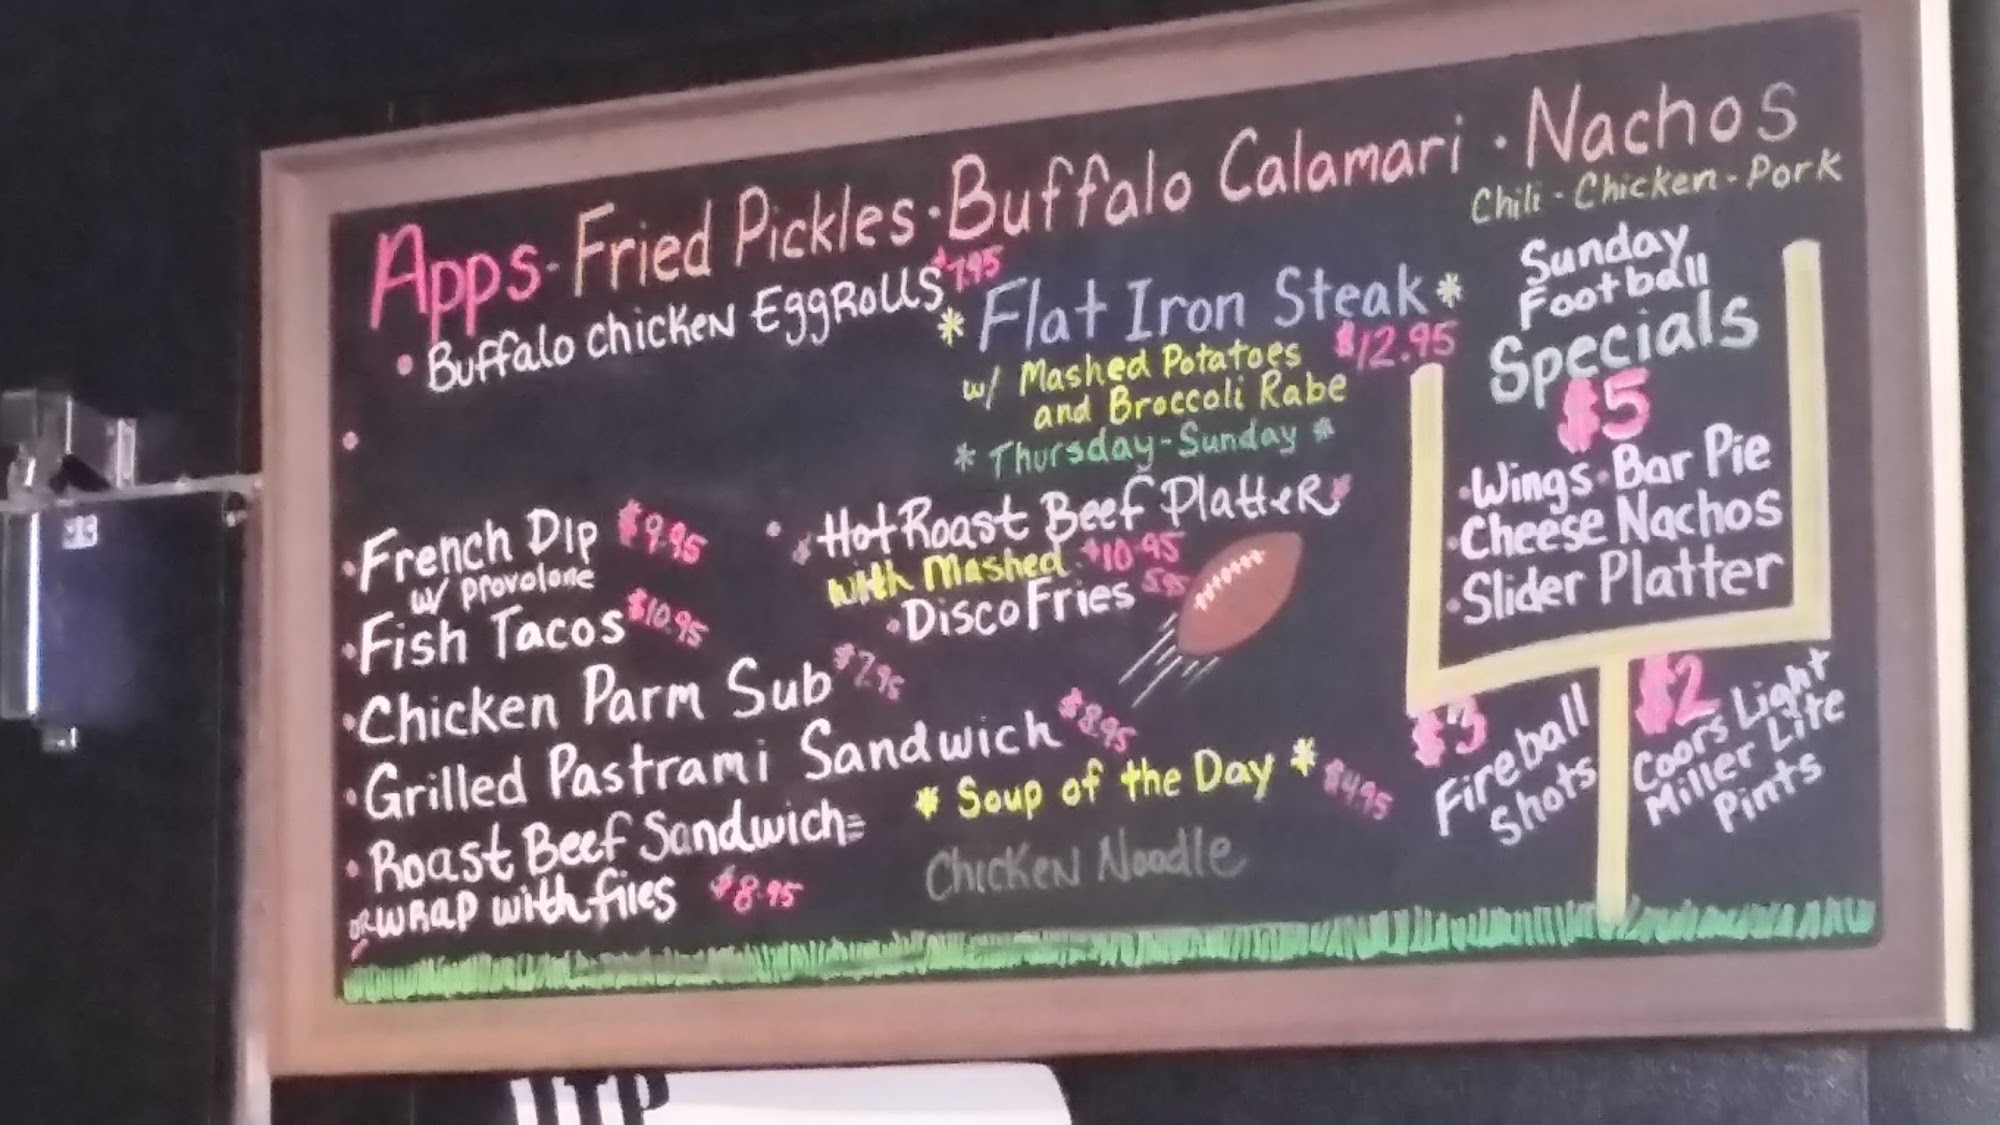 Apps · Fried Pickles · Buffalo Calamari · Nachos
Chili - Chicken - Pork
• Buffalo chicken EggRolls $7.95
* Flat Iron Steak *
$12.95
w/ Mashed Potatoes
and Broccoli Rabe
* Thursday-Sunday *
• French Dip $9.95
w/ provolone
• Fish Tacos $10.95
• Chicken Parm Sub $7.95
• Grilled Pastrami Sandwich $8.95
• Roast Beef Sandwich
OR WRAP with fries $8.95
• Hot Roast Beef Platter
with Mashed $10.95
• Disco Fries 5.95
* Soup of the Day * $4.95
Chicken Noodle
Sunday
Football
Specials
$5
• Wings • Bar Pie
• Cheese Nachos
• Slider Platter
$3
Fireball
Shots
$2
Coors Light
Miller Lite
Pints